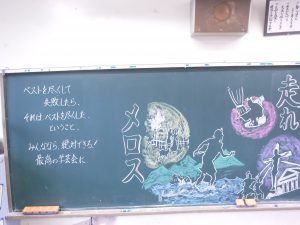 ベストを尽くして
失敗したら、
それは ベストを尽くした、
ということ。
みんななら、絶対できる!
最高の学芸会に
走れ
メロス